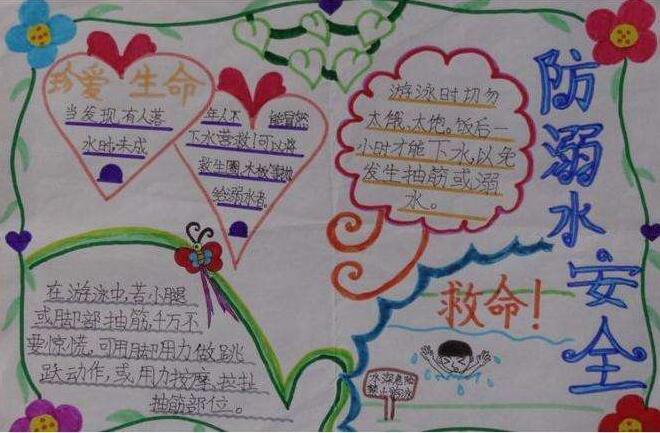 珍爱 生命
当发现有人落
水时,未成
年人不 能冒然
下水营救!可以将
救生圈、木板等抛
给溺水者。
游泳时切勿
太饿、太饱。饭后一
小时才能下水,以免
发生抽筋或溺
水。
防溺水安全
救命!
在游泳中,若小腿
或脚部抽筋,千万不
要惊慌,可用脚用力做跳
跃动作,或用力按摩、拉扯
抽筋部位。